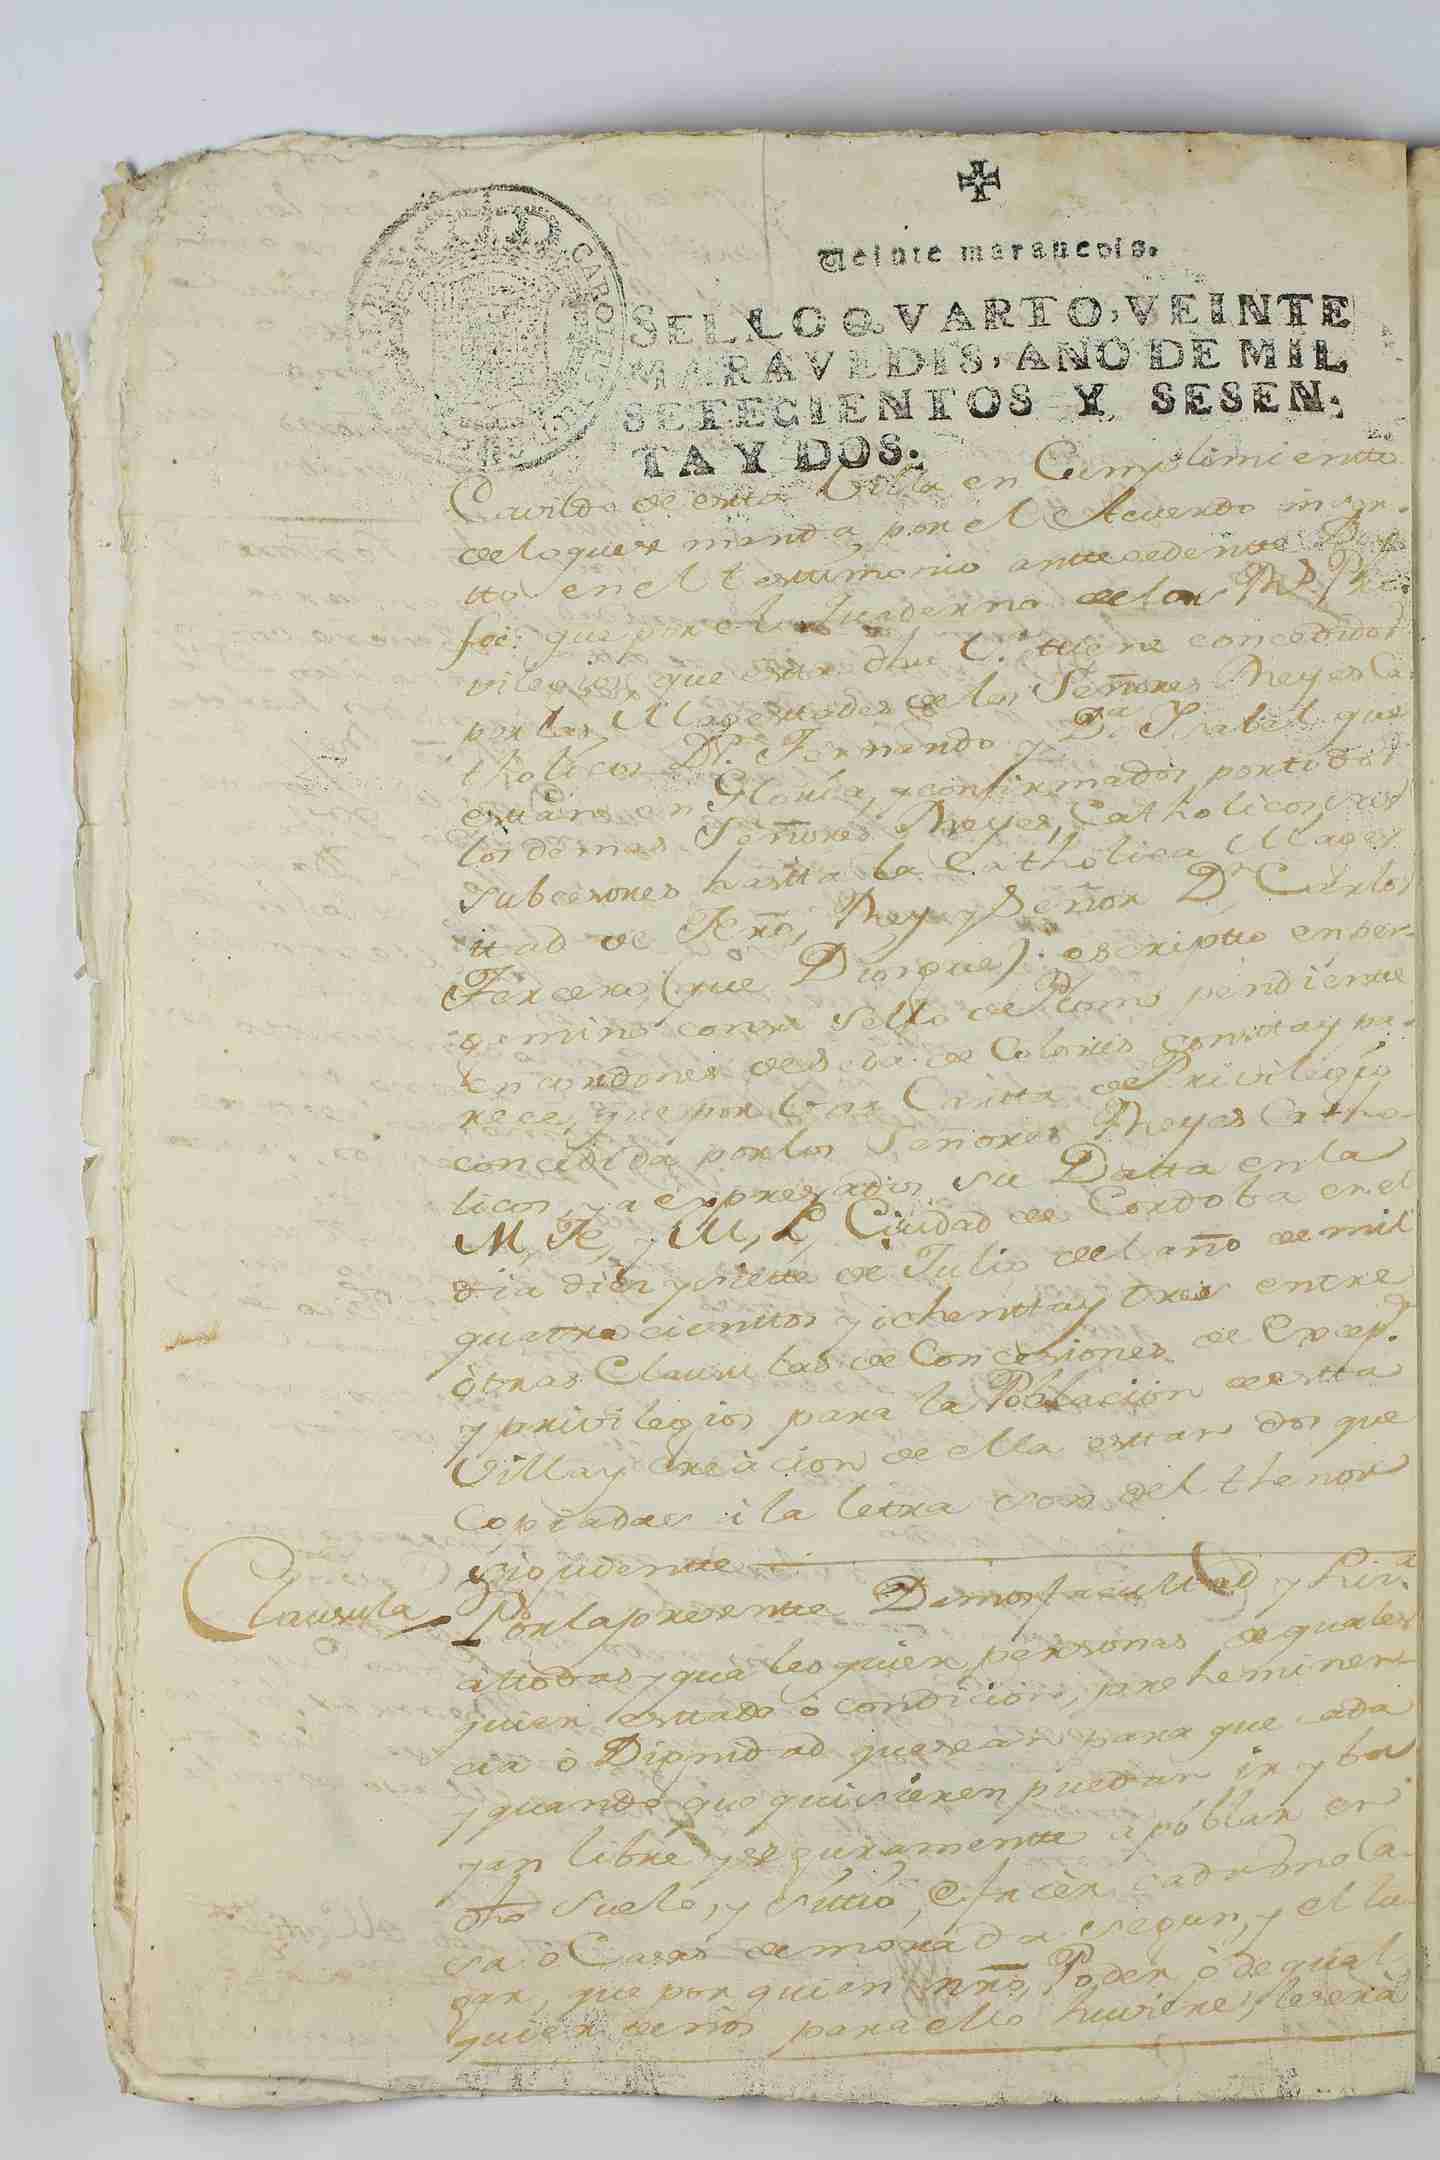 CAROL
Veinte maravedis.
SELLO QVARTO, VEINTE
MARAVEDIS, AÑO DE MIL
SETECIENTOS Y SESEN-
TA Y DOS.
Cavildo de estta Villa en Cumplimientto
de lo que se manda por el Acuerdo inser-
tto en el testtimonio anttecedentte Doy
fee: que por el Quaderno de los Rs. Pri-
vilegios que estta dha V.ª tiene concedidos
por las Magesttades de los Señores Reyes Ca-
tholicos Dn. Fernando y D.ª Ysabel que
esttan en Gloria, y confirmados por todos
los demas Señores Reyes, Catholicos sus
subcesores hastta la Catholica Mages
ttad de Nrô, Rey y Señor Dn Carlos
Tercero (que Dios gue) escriptto en per-
gamino con su sello de Plomo pendiente
en cordones de seda de Colores constta y pa-
rece, que por la Cartta de Privilegio
concedida por los Señores Reyes Catho-
licos, ya expresados, su Datta en la
M, N, y M, L, Ciudad de Cordoba en el
dia diez y siette de Julio del año de mil
quatrocienttos y ochentta y tres entre
òtras Clausulas de Concesiones de
y privilegios para la Poblacion de estta
Villa y creacion de ella esttan dos que
copiadas à la letra son del thenor
siguientte
Clausula Por la presentte Damos facultad y Liz.ª
à ttodas y quales quier personas de quales
quier esttado ò condicion, preheminen-
cia ò Dignidad que sean para que cada
y quando que quisieren puedan ir y ba
yan libre y seguramentte à poblar en
dho suelo, y sittio, è hacer cada uno Ca-
sa ò Casas de morada segun, y el lu-
gar, que por quien nrô, Poder ò de qual
quier de nos para ello huviere, le serà